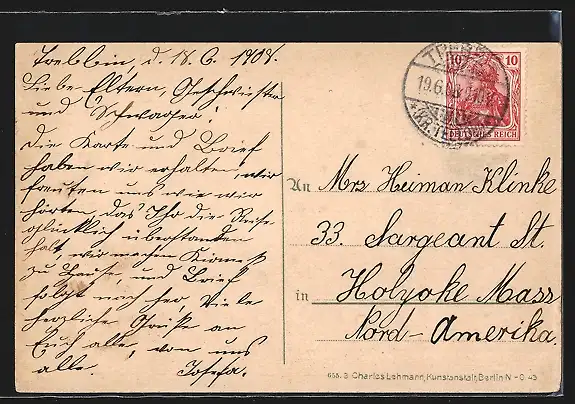 Trebbin, d. 18.6. 1908.
Liebe Eltern, Geschwister
und Schwager!
Die Karte und Brief
haben wir erhalten, wir
freuten uns wie wir
hörten, das Ihr die Reise
glücklich überstanden
habt, wir machen
zu Reise, und Brief
folgt nach her, Viele
herzliche Grüße an
Euch alle, von uns
alle. Josefa.
TREBBIN
19.6.
10 10
DEUTSCHES REICH
An Mrs Heiman Klinke
33. Sargeant St.
in Holyoke Mass
Nord-Amerika.
Charles Lehmann, Kunstanstalt, Berlin N